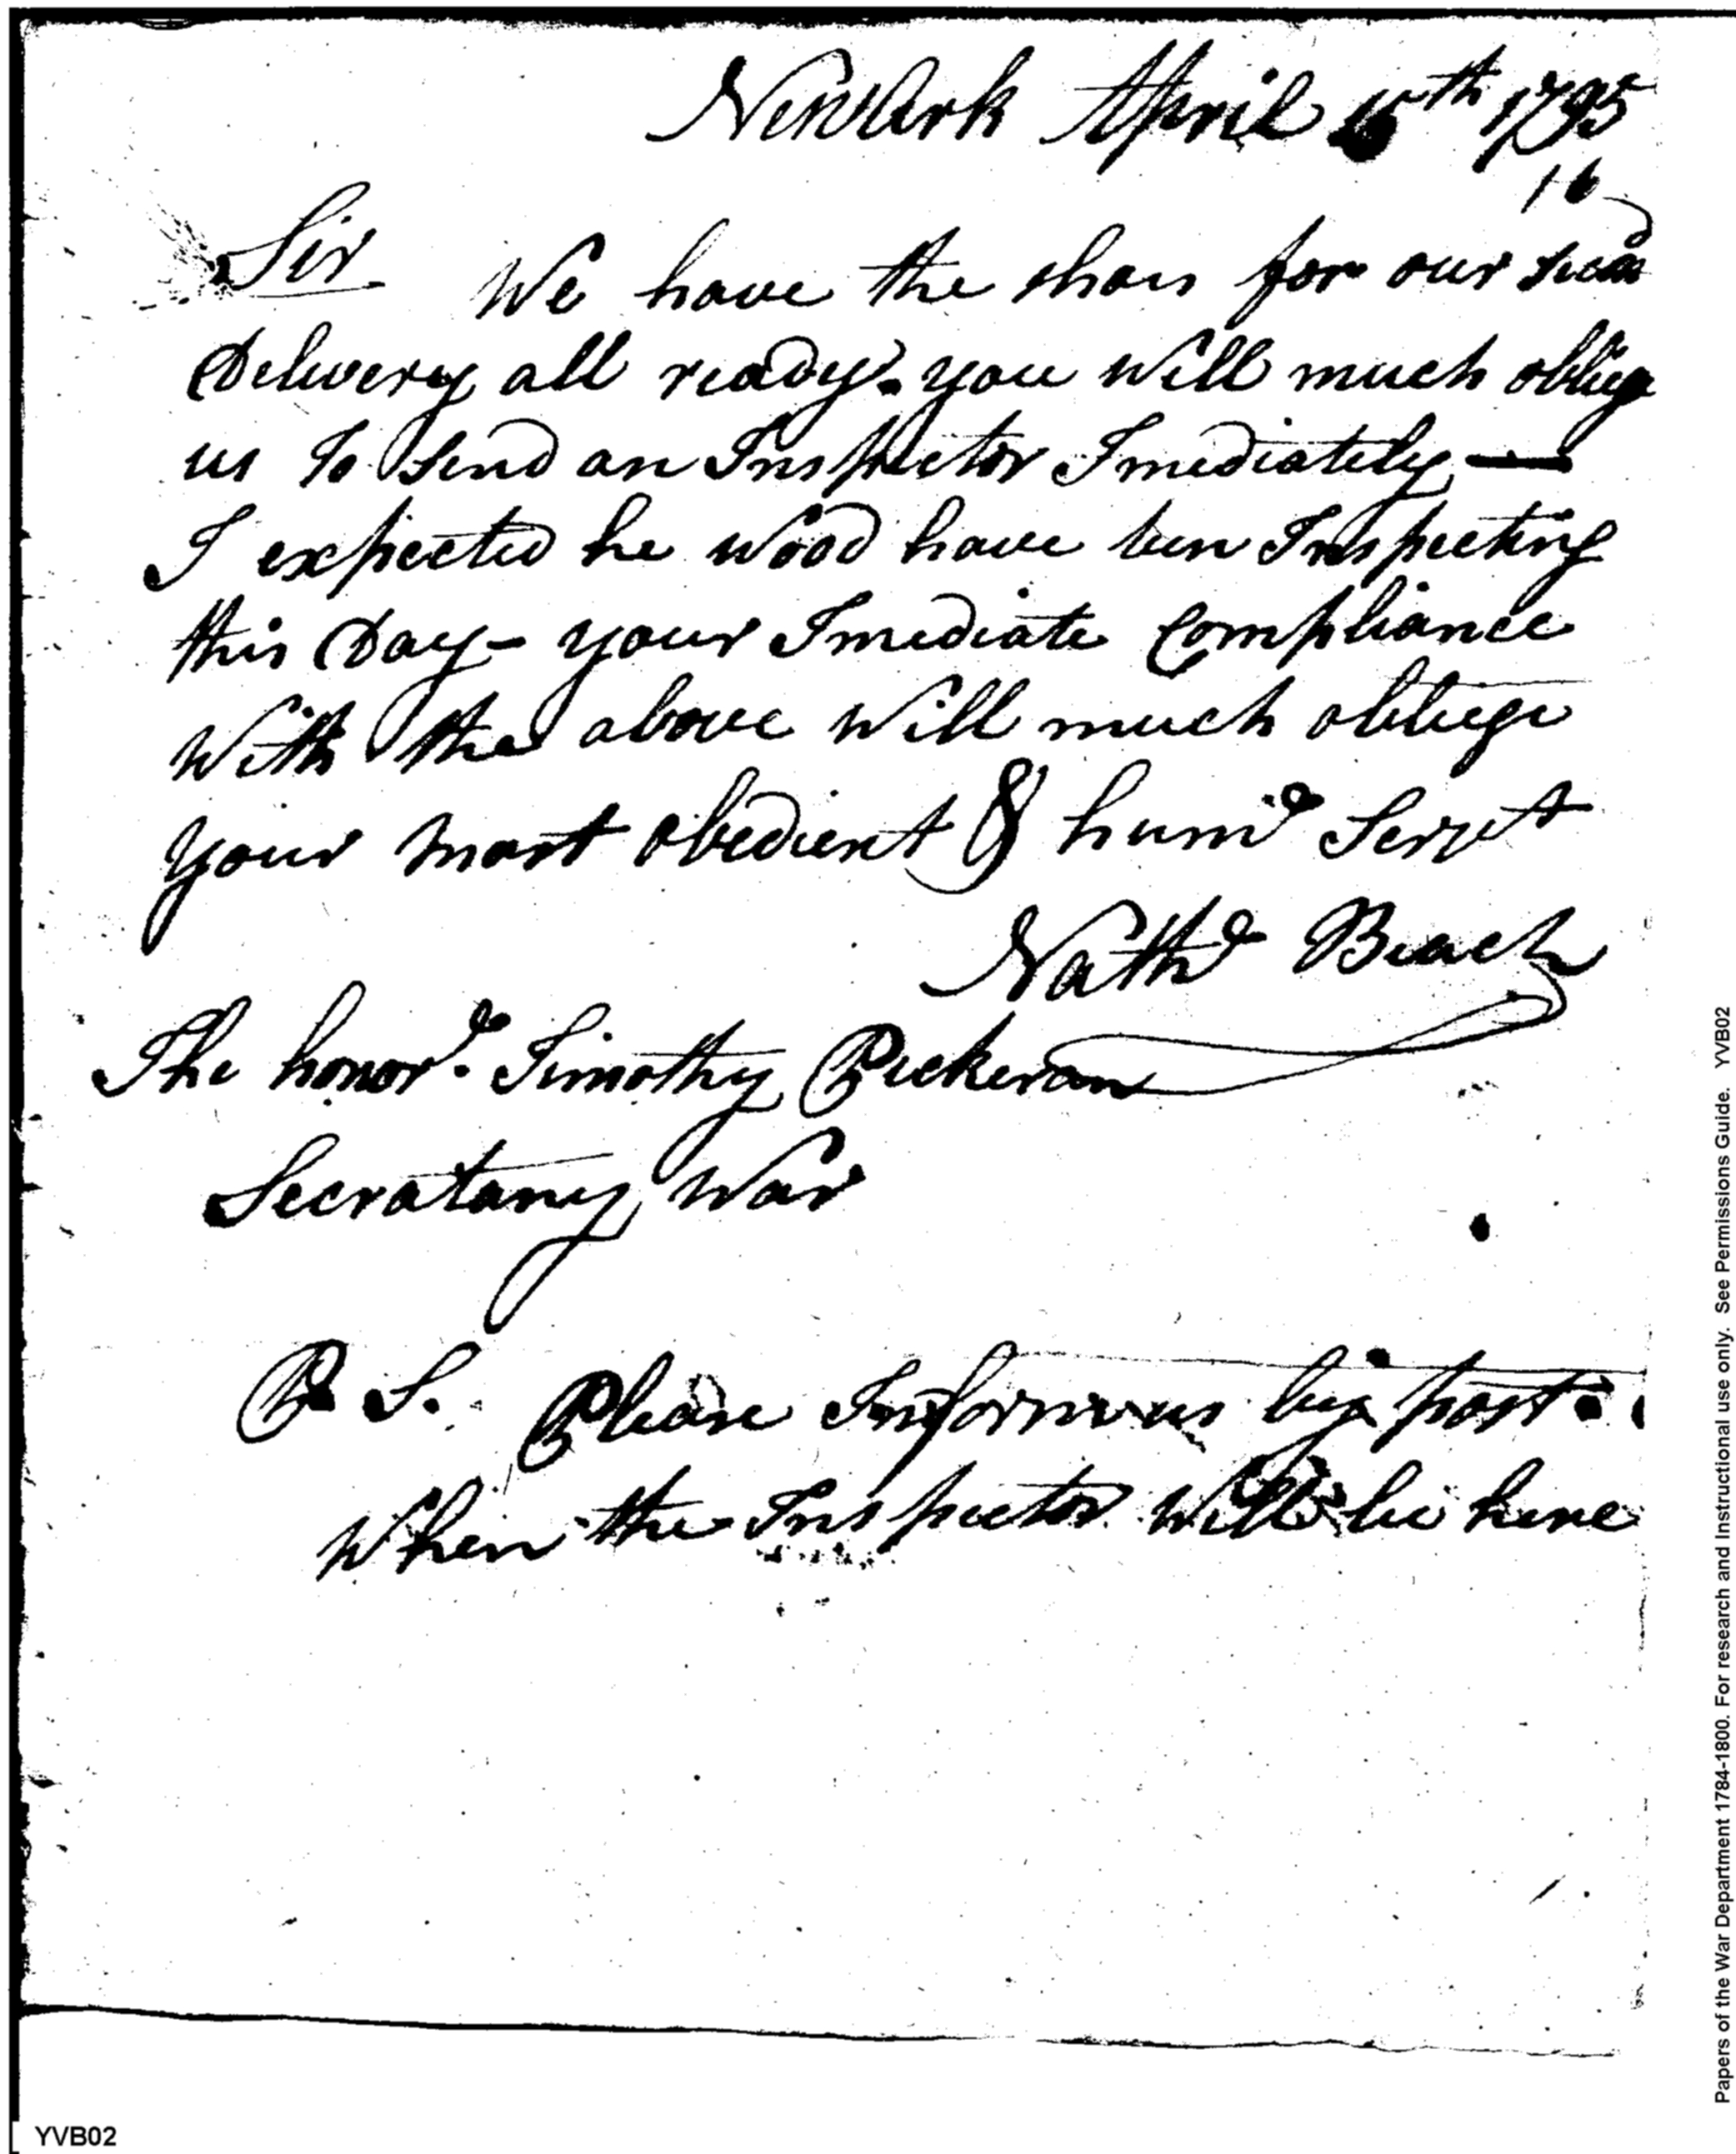 Newark April 15th 1795
16
Sir We have the shoes for our
Delivery all ready. you Will much oblige
us to Send an Inspector Imediately —
I expected he Wood have ben Inspecting
this Day - your Imediate Compliance
With the above Will much obliege
your most obedient & humle Servt
Nathl Beach
The honorle Timothy Pickeran
Secratary War
P S. Please Inform us by post.
When the Inspector Will be here
Papers of the War Department 1784-1800. For research and Instructional use only. See Permissions Guide. YVB02
YVB02